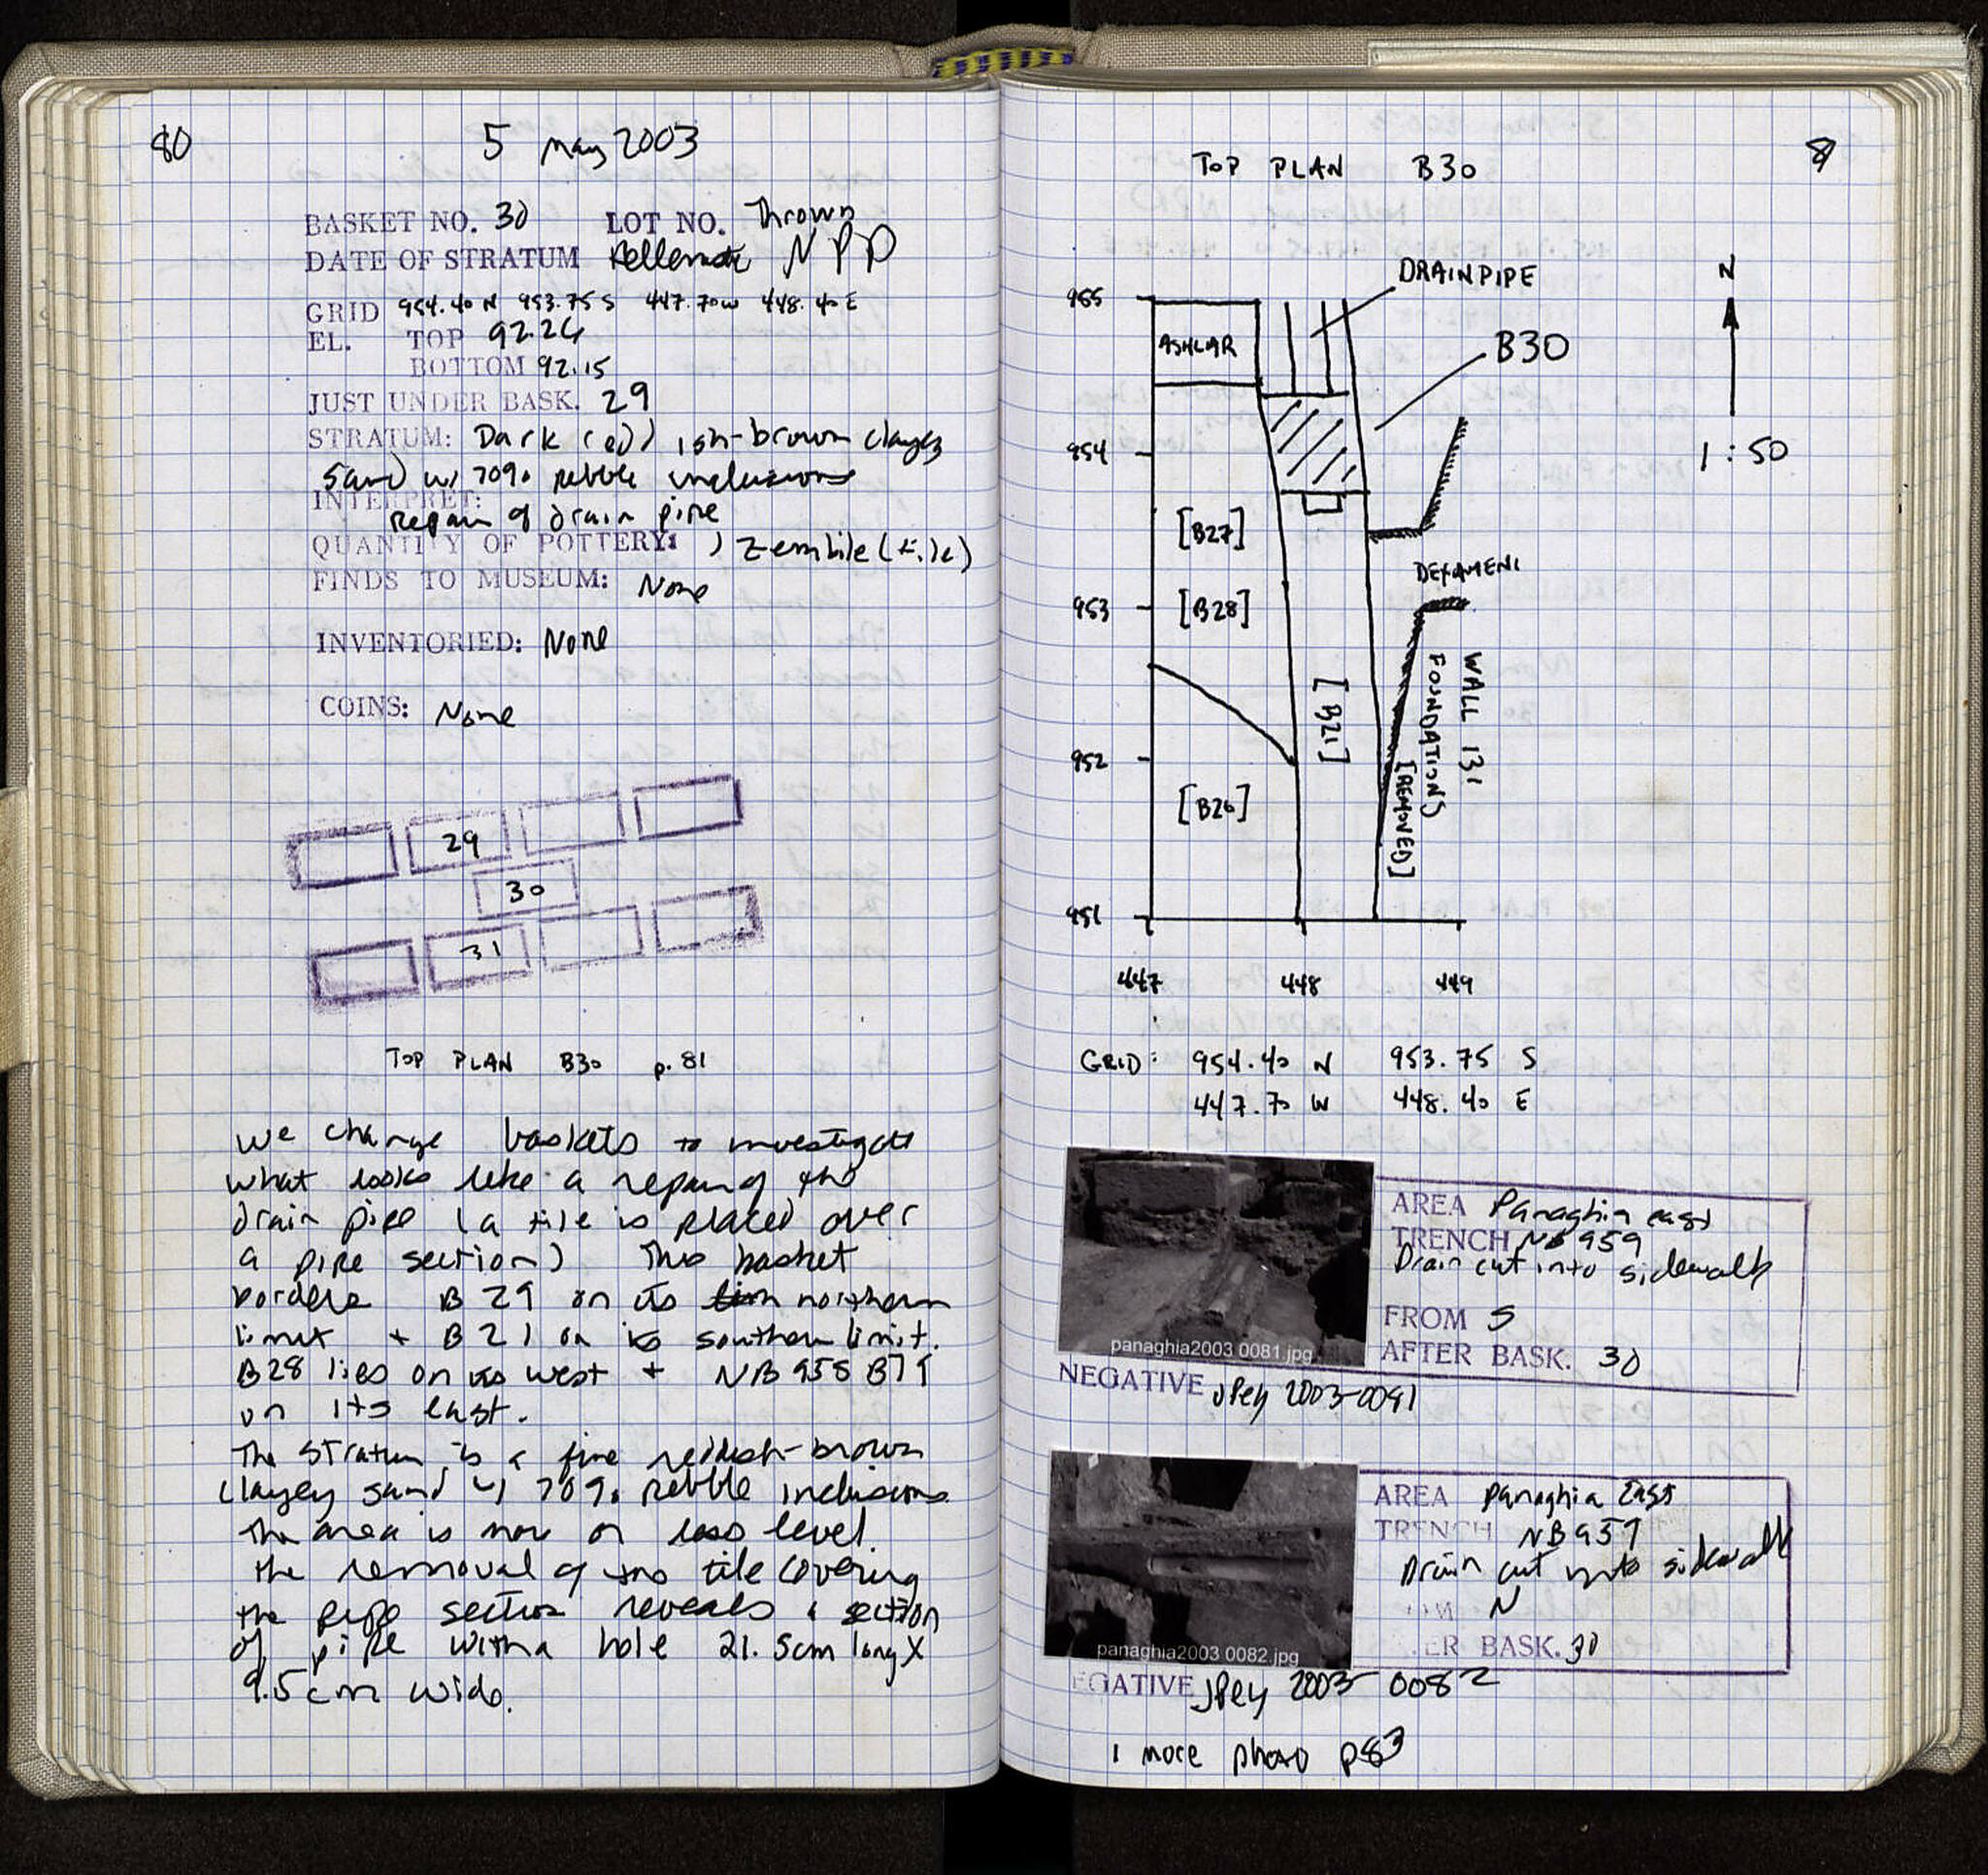 80
5 May 2003
BASKET NO. 30 LOT NO. Thrown
DATE OF STRATUM NPD
GRID 954.40 N 953.75 S 447.70 W 448.40 E
EL. TOP 92.26
BOTTOM 92.15
JUST UNDER BASK. 29
STRATUM: Dark reddish-brown clayey
sand w/ 70% pebble inclusions
INTERPRET:
repair of drain pipe
QUANTITY OF POTTERY: 1 zembile (tile)
FINDS TO MUSEUM: None
INVENTORIED: None
COINS: None
29
30
31
TOP PLAN B30 p. 81
We change baskets to investigate
what looks like a repair of the
drain pipe (a tile is placed over
a pipe section) This basket
borders B29 on its northern
limit + B21 on its southern limit.
B28 lies on its west + NB 958 B79
on its east.
The stratum is a fine reddish-brown
clayey sand w/ 70% pebble inclusions.
The area is more or less level.
The removal of the tile covering
the pipe section reveals a section
of pipe with a hole 21.5cm long X
9.5cm wide.
81
TOP PLAN B30
DRAINPIPE
N
955
ASHLAR
B30
954
1 : 50
[B27]
DEXAMENI
953
[B28]
WALL 131
FOUNDATIONS
[REMOVED]
[B21]
952
[B26]
951
447 448 449
GRID: 954.40 N 953.75 S
447.70 W 448.40 E
AREA Panaghia east
TRENCH NB 959
Drain cut into sidewalk
FROM S
AFTER BASK. 30
panaghia2003 0081.jpg
NEGATIVE JPeg 2003-0081
AREA Panaghia East
TRENCH NB 959
Drain cut into sidewalk
OM N
ER BASK. 30
panaghia2003 0082.jpg
EGATIVE JPeg 2003-0082
1 more photo p83